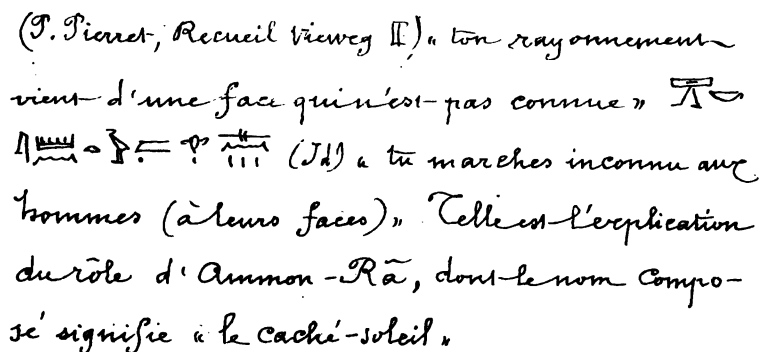 (P. Pierret, Recueil Vieweg II) « ton rayonnement
vient d'une face qui n'est pas connue »
(Id) « tu marches inconnu aux
hommes (à leurs faces) » Telle est l'explication
du rôle d'Ammon-Rã, dont le nom compo-
sé signifie « le caché-soleil »